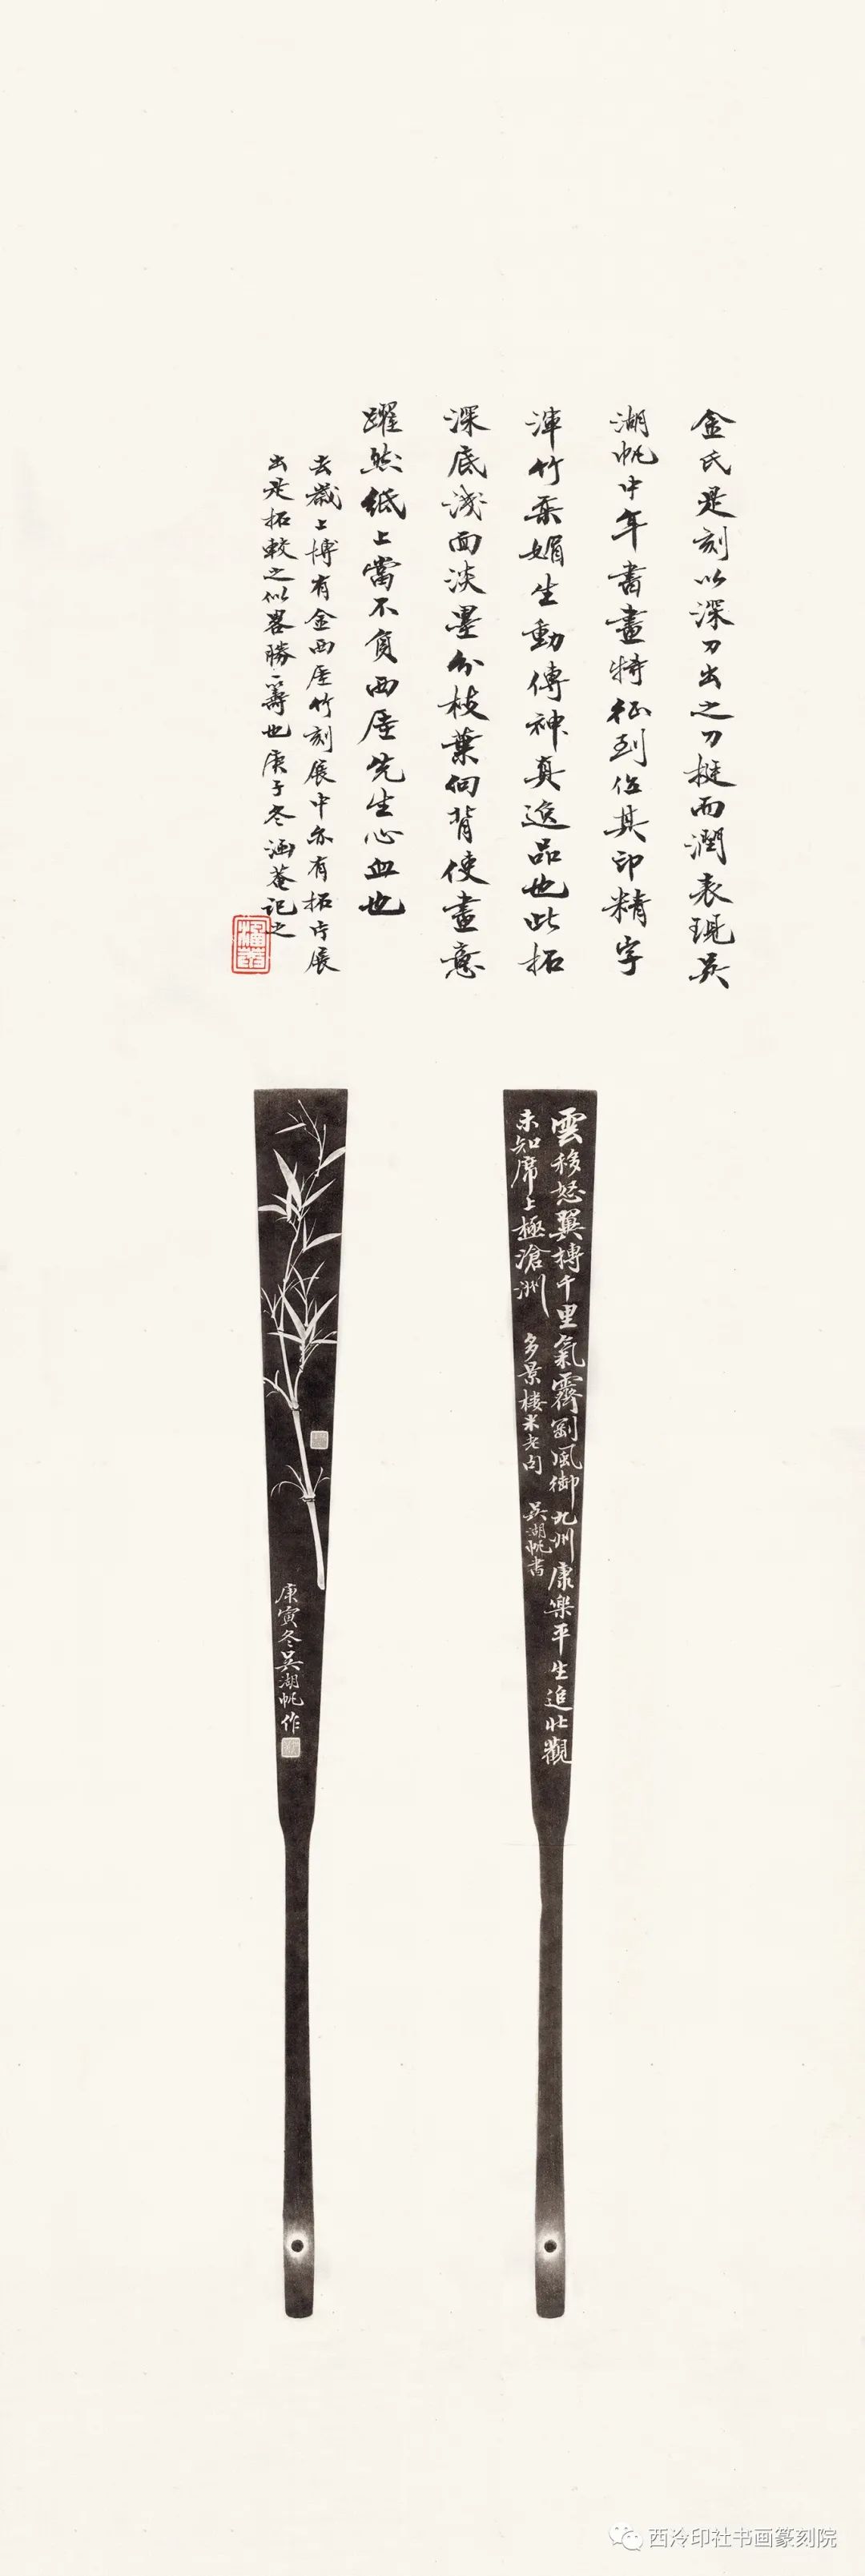 金氏是刻以深刀出之刀挺而潤表現吳
湖帆中年書畫特征到位其印精字
渾竹柔媚生動傳神真逸品也此拓
深底淺面淡墨分枝葉向背使畫意
躍然紙上當不負西厓先生心血也
去歲上博有金西厓竹刻展中亦有拓片展
出是拓較之似畧勝一籌也庚子冬涵菴記之
雲移怒翼摶千里氣霽剛風御九州康樂平生追壯觀
未知席上極滄洲 多景樓米老句 吳湖帆書
庚寅冬吳湖帆作
西泠印社书画篆刻院